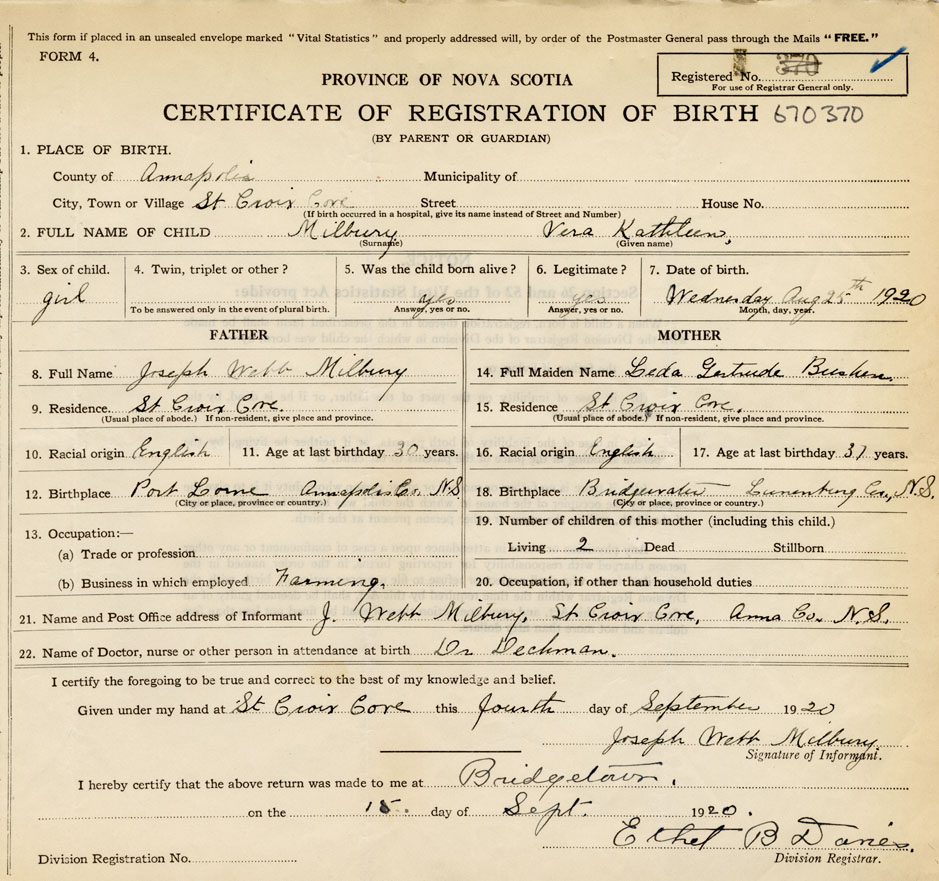 This form if placed in an unsealed envelope marked "Vital Statistics" and properly addressed will, by order of the Postmaster General pass through the Mails "FREE."
FORM 4.
Registered No. 370
For use of Registrar General only.
PROVINCE OF NOVA SCOTIA
CERTIFICATE OF REGISTRATION OF BIRTH 670370
(BY PARENT OR GUARDIAN)
1. PLACE OF BIRTH.
County of Annapolis Municipality of
City, Town or Village St Croix Cove Street House No.
(If birth occurred in a hospital, give its name instead of Street and Number)
2. FULL NAME OF CHILD Milbury Vera Kathleen,
(Surname) (Given name)
3. Sex of child. 4. Twin, triplet or other? 5. Was the child born alive? 6. Legitimate? 7. Date of birth.
girl yes yes Wednesday Aug 25th 1920
To be answered only in the event of plural birth. Answer, yes or no. Answer, yes or no. Month, day, year.
FATHER MOTHER
8. Full Name Joseph Webb Milbury 14. Full Maiden Name Leda Gertrude
9. Residence. St Croix Cove. 15. Residence St Croix Cove.
(Usual place of abode.) If non-resident, give place and province. (Usual place of abode.) If non-resident, give place and province.
10. Racial origin English 11. Age at last birthday 30 years. 16. Racial origin English 17. Age at last birthday years.
12. Birthplace Port Lorne Annapolis Co. N.S. 18. Birthplace Bridgewater Lunenburg Co., N.S.
(City or place, province or country.) (City or place, province or country.)
13. Occupation:— 19. Number of children of this mother (including this child.)
(a) Trade or profession Living 2 Dead Stillborn
(b) Business in which employed Farming. 20. Occupation, if other than household duties
21. Name and Post Office address of Informant J. Webb Milbury, St Croix Cove, Anna Co. N.S.
22. Name of Doctor, nurse or other person in attendance at birth Dr Deckman.
I certify the foregoing to be true and correct to the best of my knowledge and belief.
Given under my hand at St Croix Cove this fourth day of September 1920
Joseph Webb Milbury
Signature of Informant.
I hereby certify that the above return was made to me at Bridgetown.
on the 15 day of Sept. 1920.
Ethel B Davies.
Division Registration No. Division Registrar.